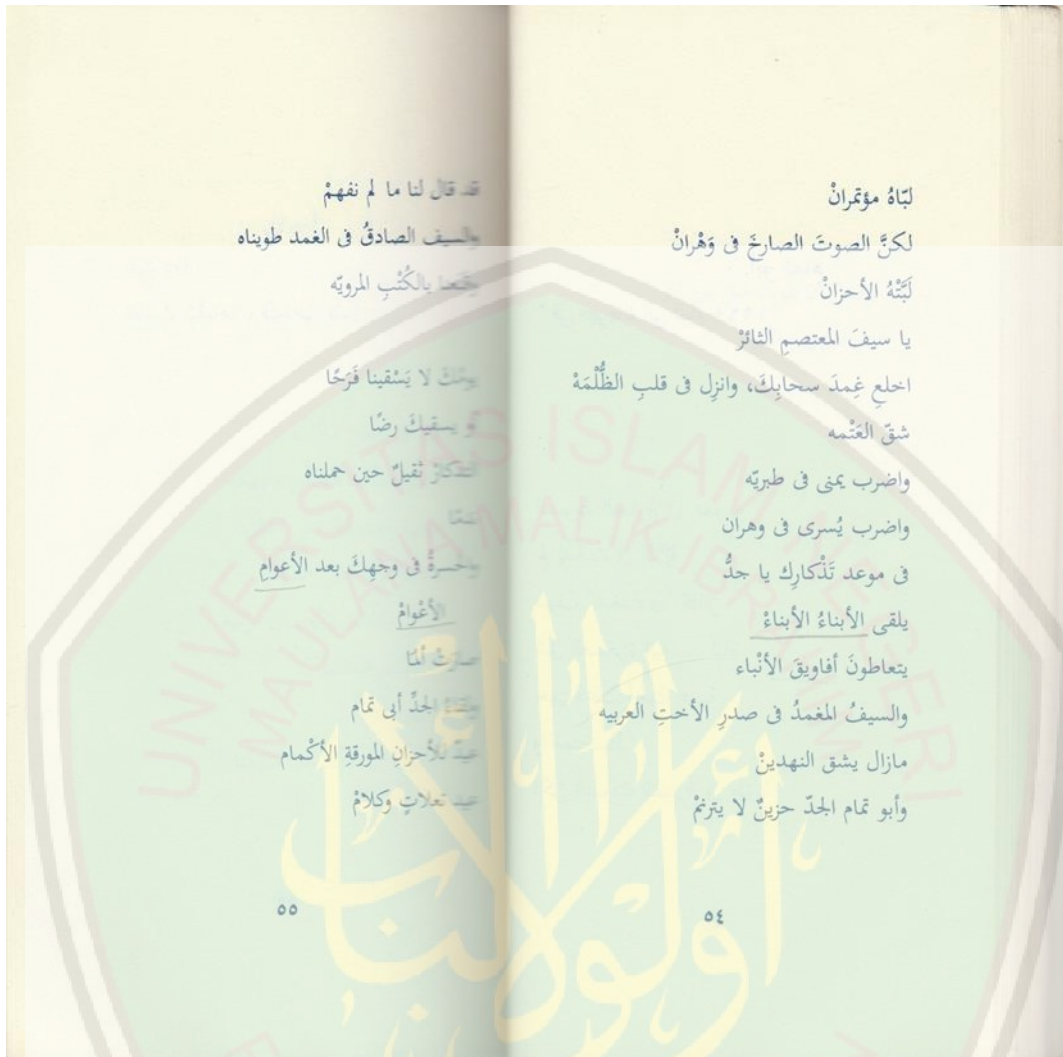 لبّاهُ مؤتمرانْ
لكنَّ الصوتَ الصارخَ فى وَهْرانْ
لَبَّتْهُ الأحزانْ
يا سيفَ المعتصمِ الثائرْ
اخلعِ غِمدَ سحابِكَ، وانزِل فى قلبِ الظُّلْمَهْ
شقّ العَتْمه
واضرب يمنى فى طبريّه
واضرب يُسرى فى وهران
فى موعد تَذْكارِك يا جدُّ
يلقى الأبناءُ الأبناءْ
يتعاطونَ أفاويقَ الأنْباء
والسيفُ المغمدُ فى صدرِ الأختِ العربيه
مازال يشق النهدينْ
وأبو تمام الجدّ حزينٌ لا يترنمْ
٥٤
قد قال لنا ما لم نفهمْ
والسيف الصادقُ فى الغمد طويناه
بالكُتْبِ المرويّه
لا يَسْقينا فَرَحًا
يسقيكَ رضًا
ثقيلٌ حين حملناه
فى وجهِكَ بعد الأعوامِ
الأعْوامْ
صارَتْ ألمًا
الجدِّ أبى تمام
عيدٌ للأحزانِ المورقةِ الأكْمام
عيد تعلاتٍ وكلامْ
٥٥
UNIVERSITAS ISLAM NEGERI
MAULANA MALIK IBRAHIM